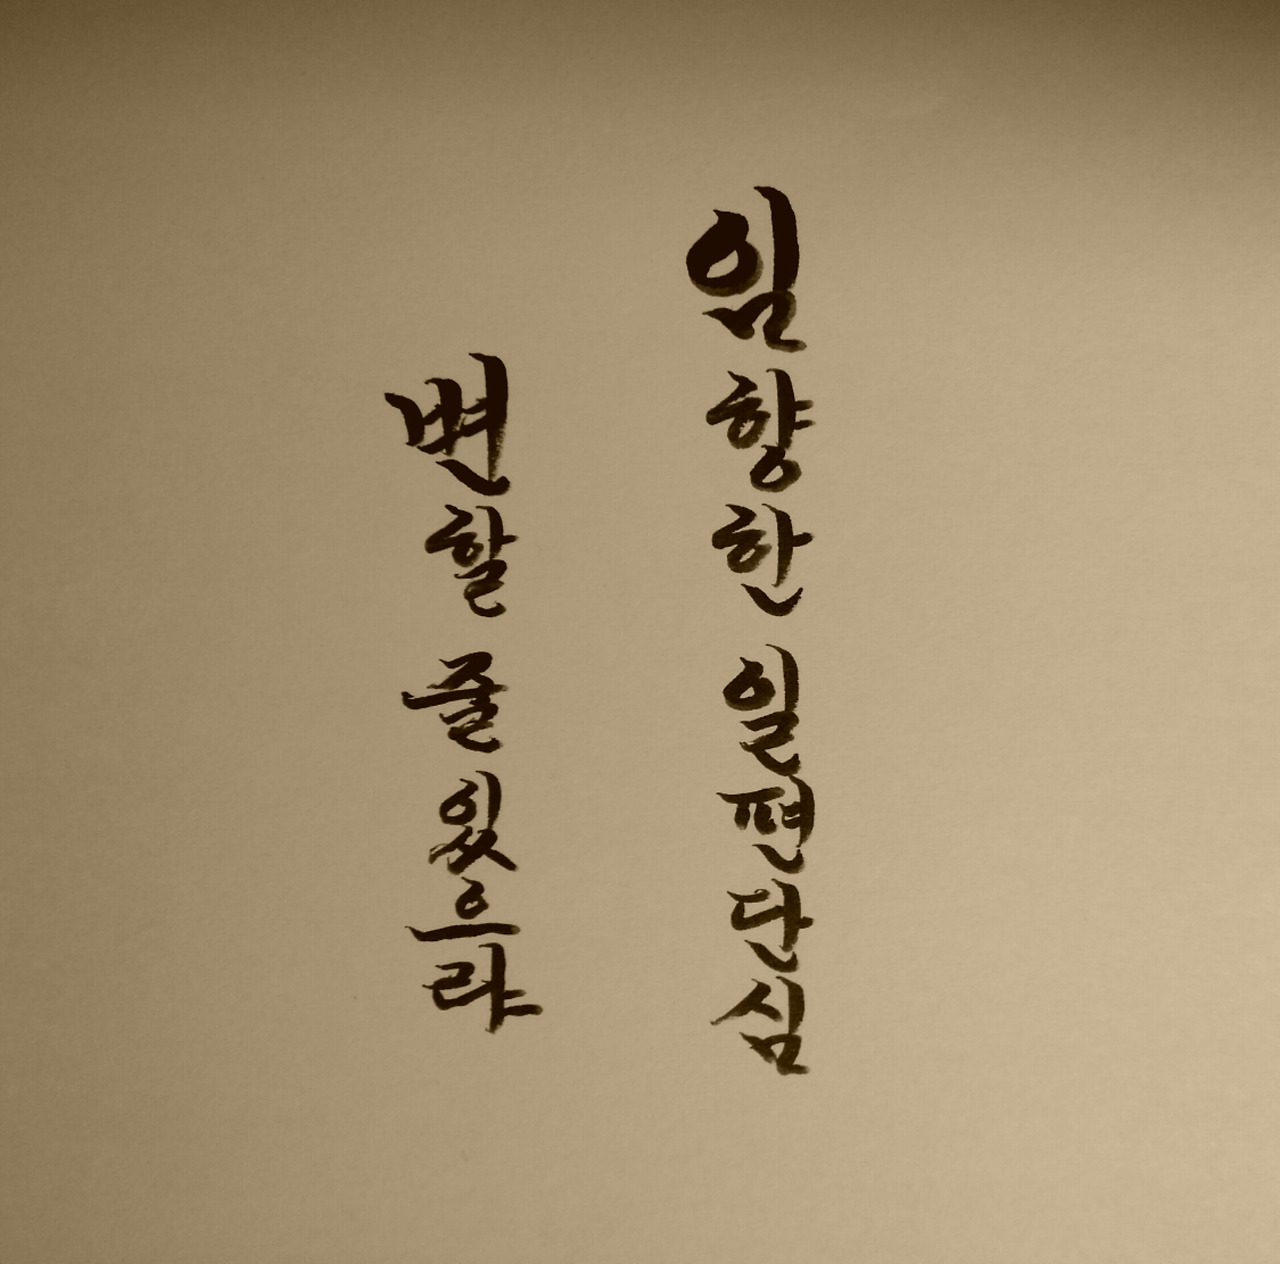 임 향한 일편단심
변할 줄 있으랴